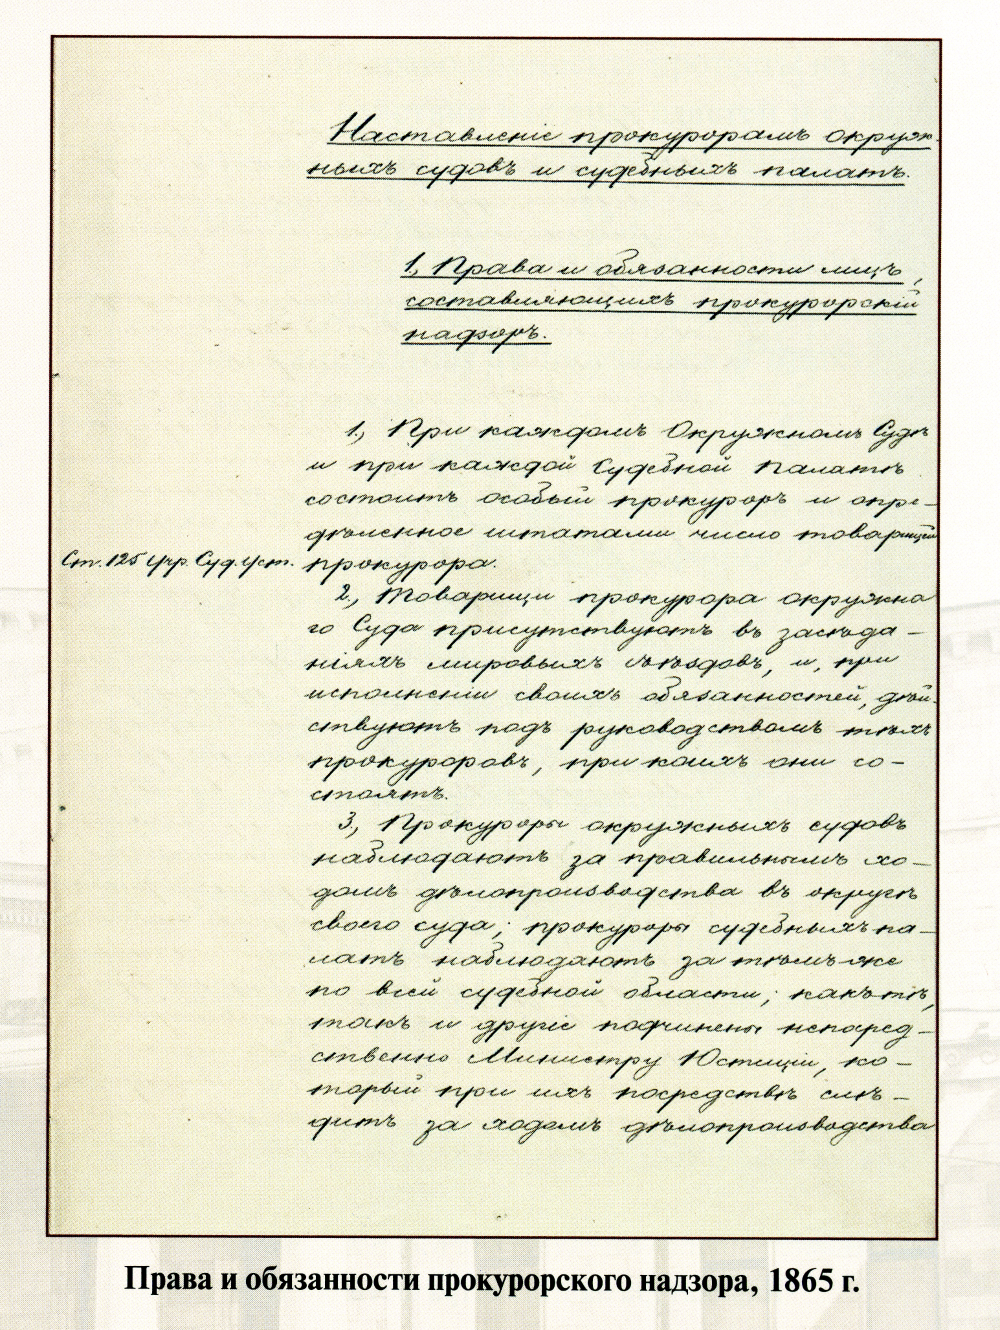 Наставленіе прокурорамъ окруж-
ныхъ судовъ и судебныхъ палатъ.
1., Права и обязанности лицъ,
составляющихъ прокурорскій
надзоръ.
1., При каждомъ Окружномъ Судѣ
и при каждой Судебной Палатѣ
состоитъ особый прокуроръ и опре-
дѣленное штатами число товарищей
Ст. 125 Учр. Суд. Уст. прокурора.
2., Товарищи прокурора окружна
го Суда присутствуютъ въ засѣда-
ніяхъ мировыхъ съѣздовъ, и, при
исполненіи своихъ обязанностей, дѣй-
ствуютъ подъ руководствомъ тѣхъ
прокуроровъ, при коихъ они со-
стоятъ.
3., Прокуроры окружныхъ судовъ
наблюдаютъ за правильнымъ хо-
домъ дѣлопроизводства въ округѣ
своего суда; прокуроры судебныхъ па-
латъ наблюдаютъ за тѣмъ же
по всей судебной области; какъ тѣ,
такъ и другіе подчинены непосред-
ственно Министру Юстиціи, ко-
торый при ихъ посредствѣ слѣ-
дитъ за ходомъ дѣлопроизводства
Права и обязанности прокурорского надзора, 1865 г.